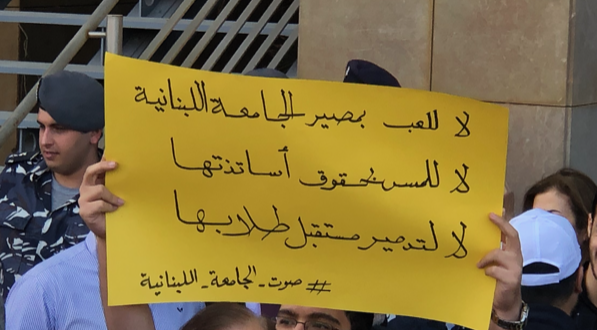 لا للعب بمصير الجامعة اللبنانية
لا للمس بحقوق أساتذتها
لا لتدمير مستقبل طلابها
# صوت_الجامعة_اللبنانية